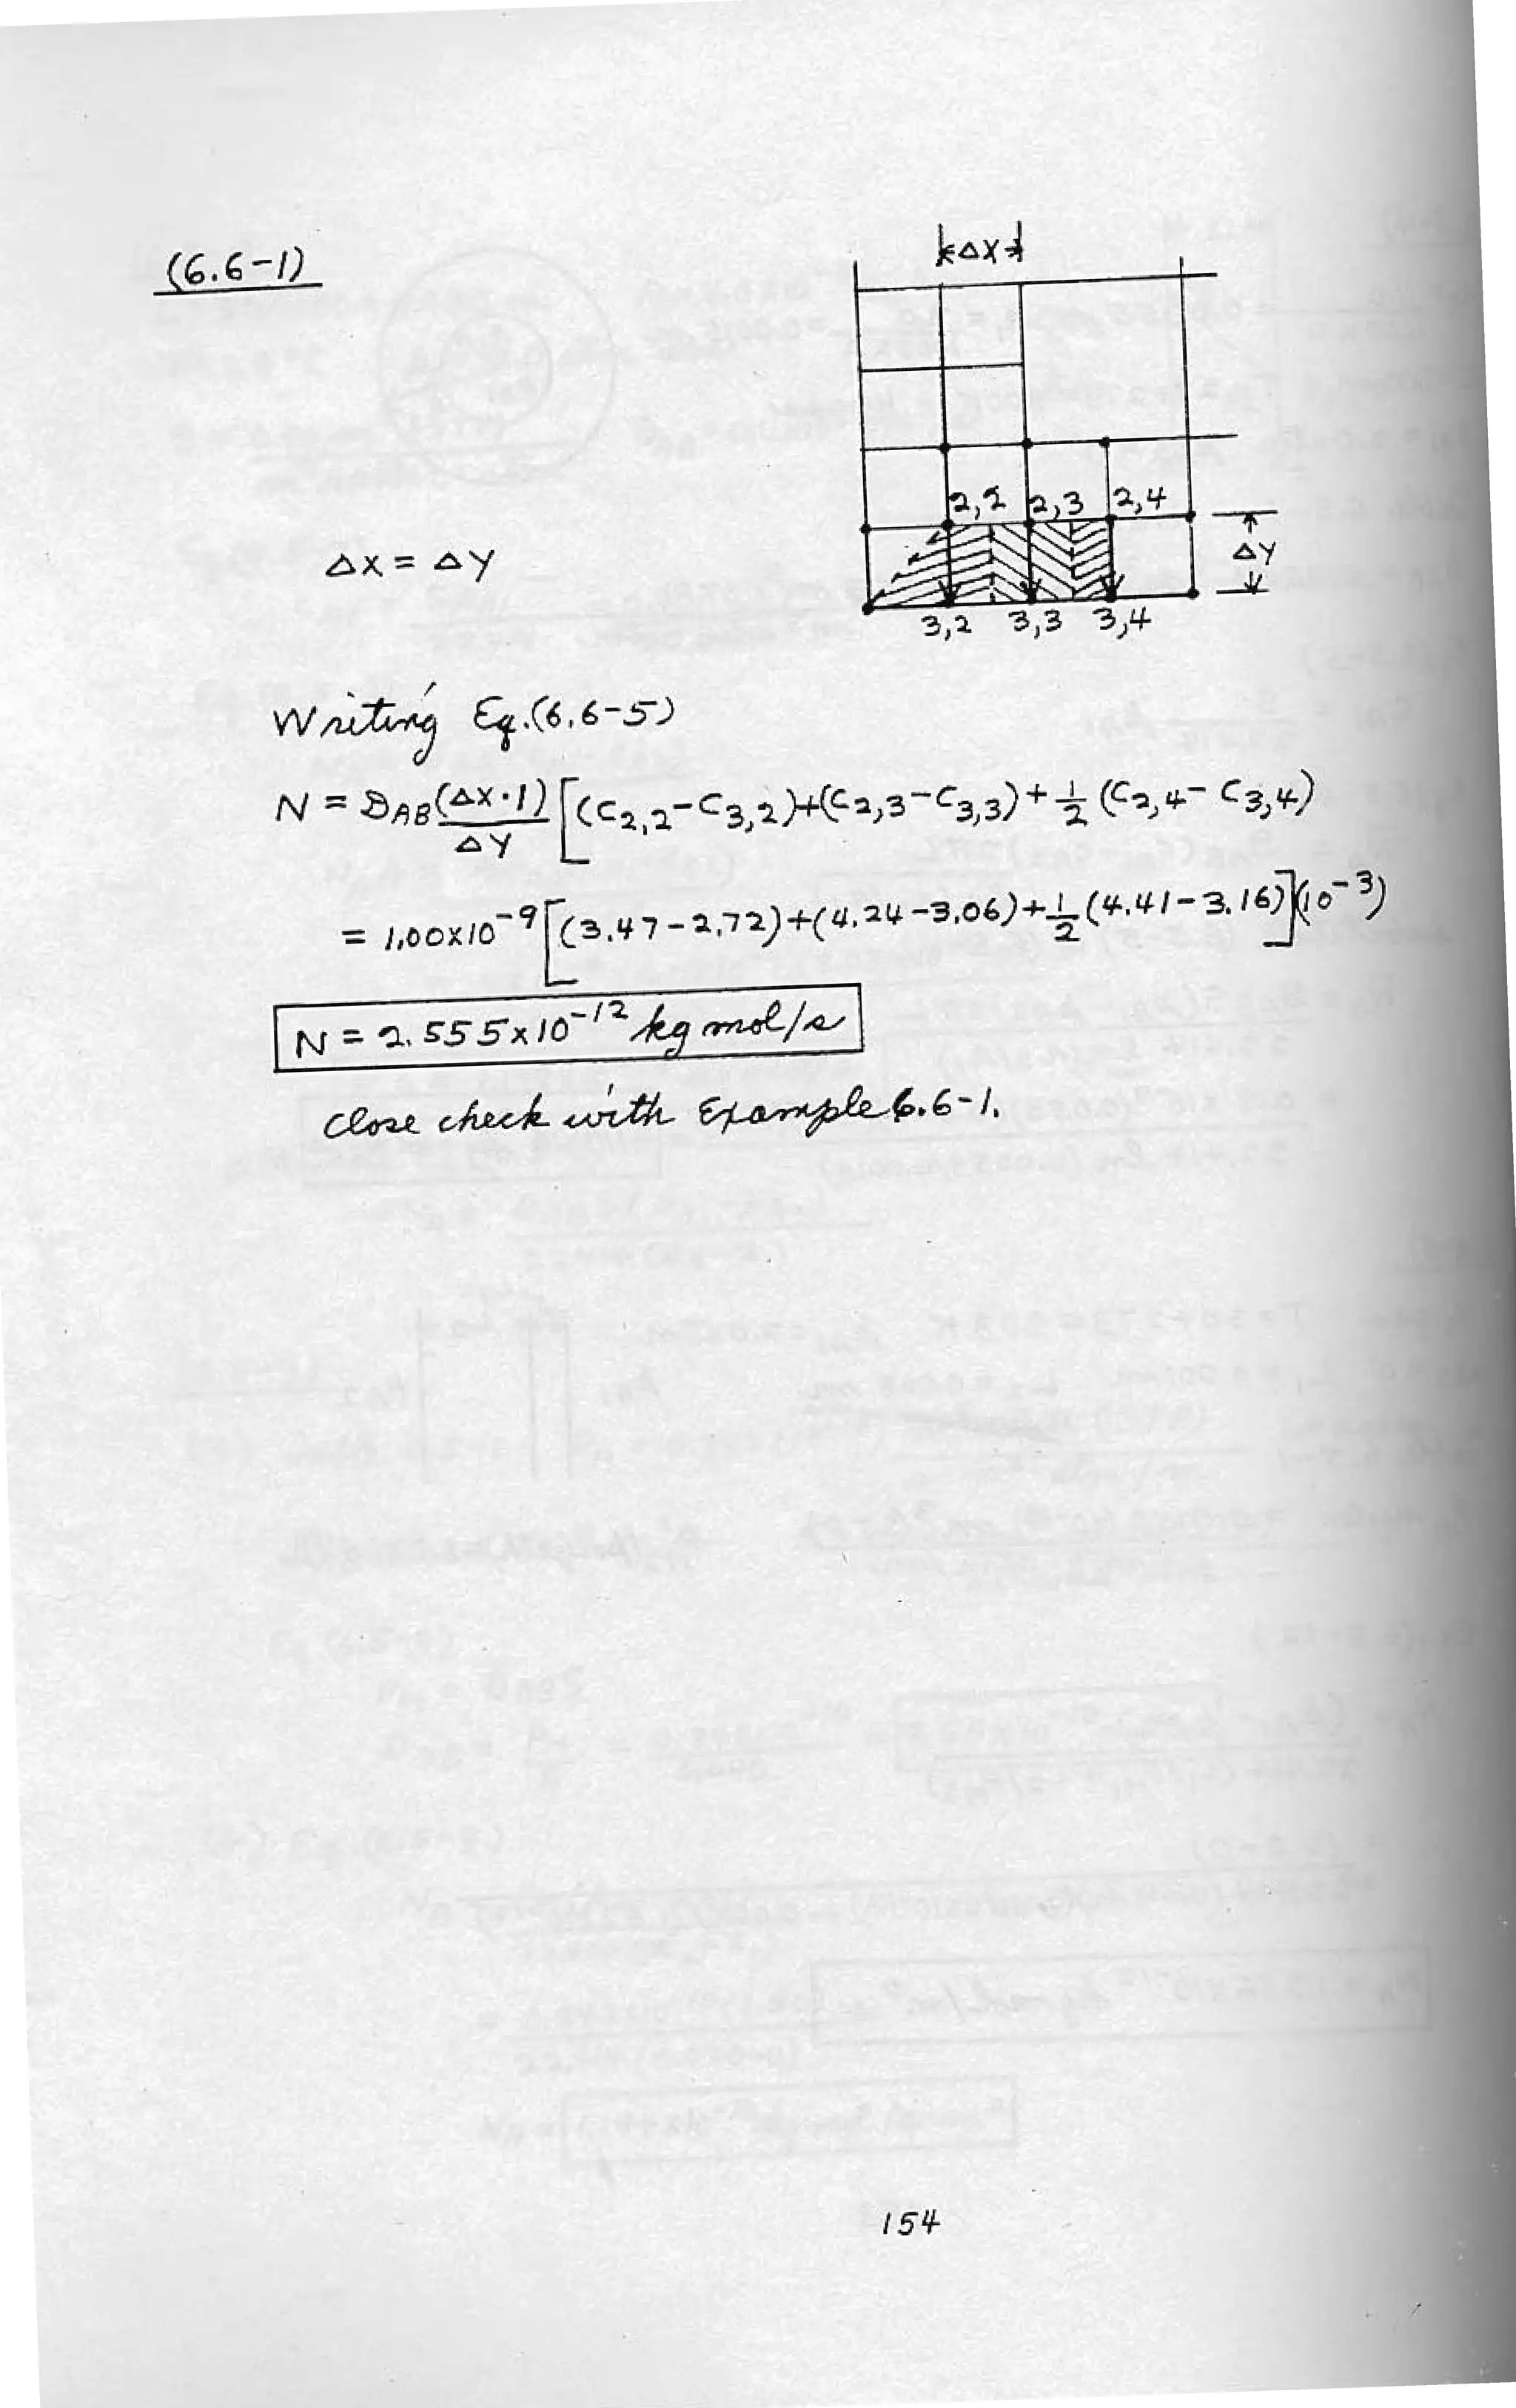 (6.6-1)
ΔX
2,2 2,3 2,4
ΔX = ΔY
ΔY
3,2 3,3 3,4
Writing Eq.(6.6-5)
N = D_AB (ΔX·1)/ΔY [(C2,2-C3,2)+(C2,3-C3,3)+1/2 (C2,4-C3,4)
= 1.00x10^-9 [(3.47-2.72)+(4.24-3.06)+1/2(4.41-3.16)](10^-3)
N = 2.555x10^-12 kg mol/s
close check with Example 6.6-1.
154